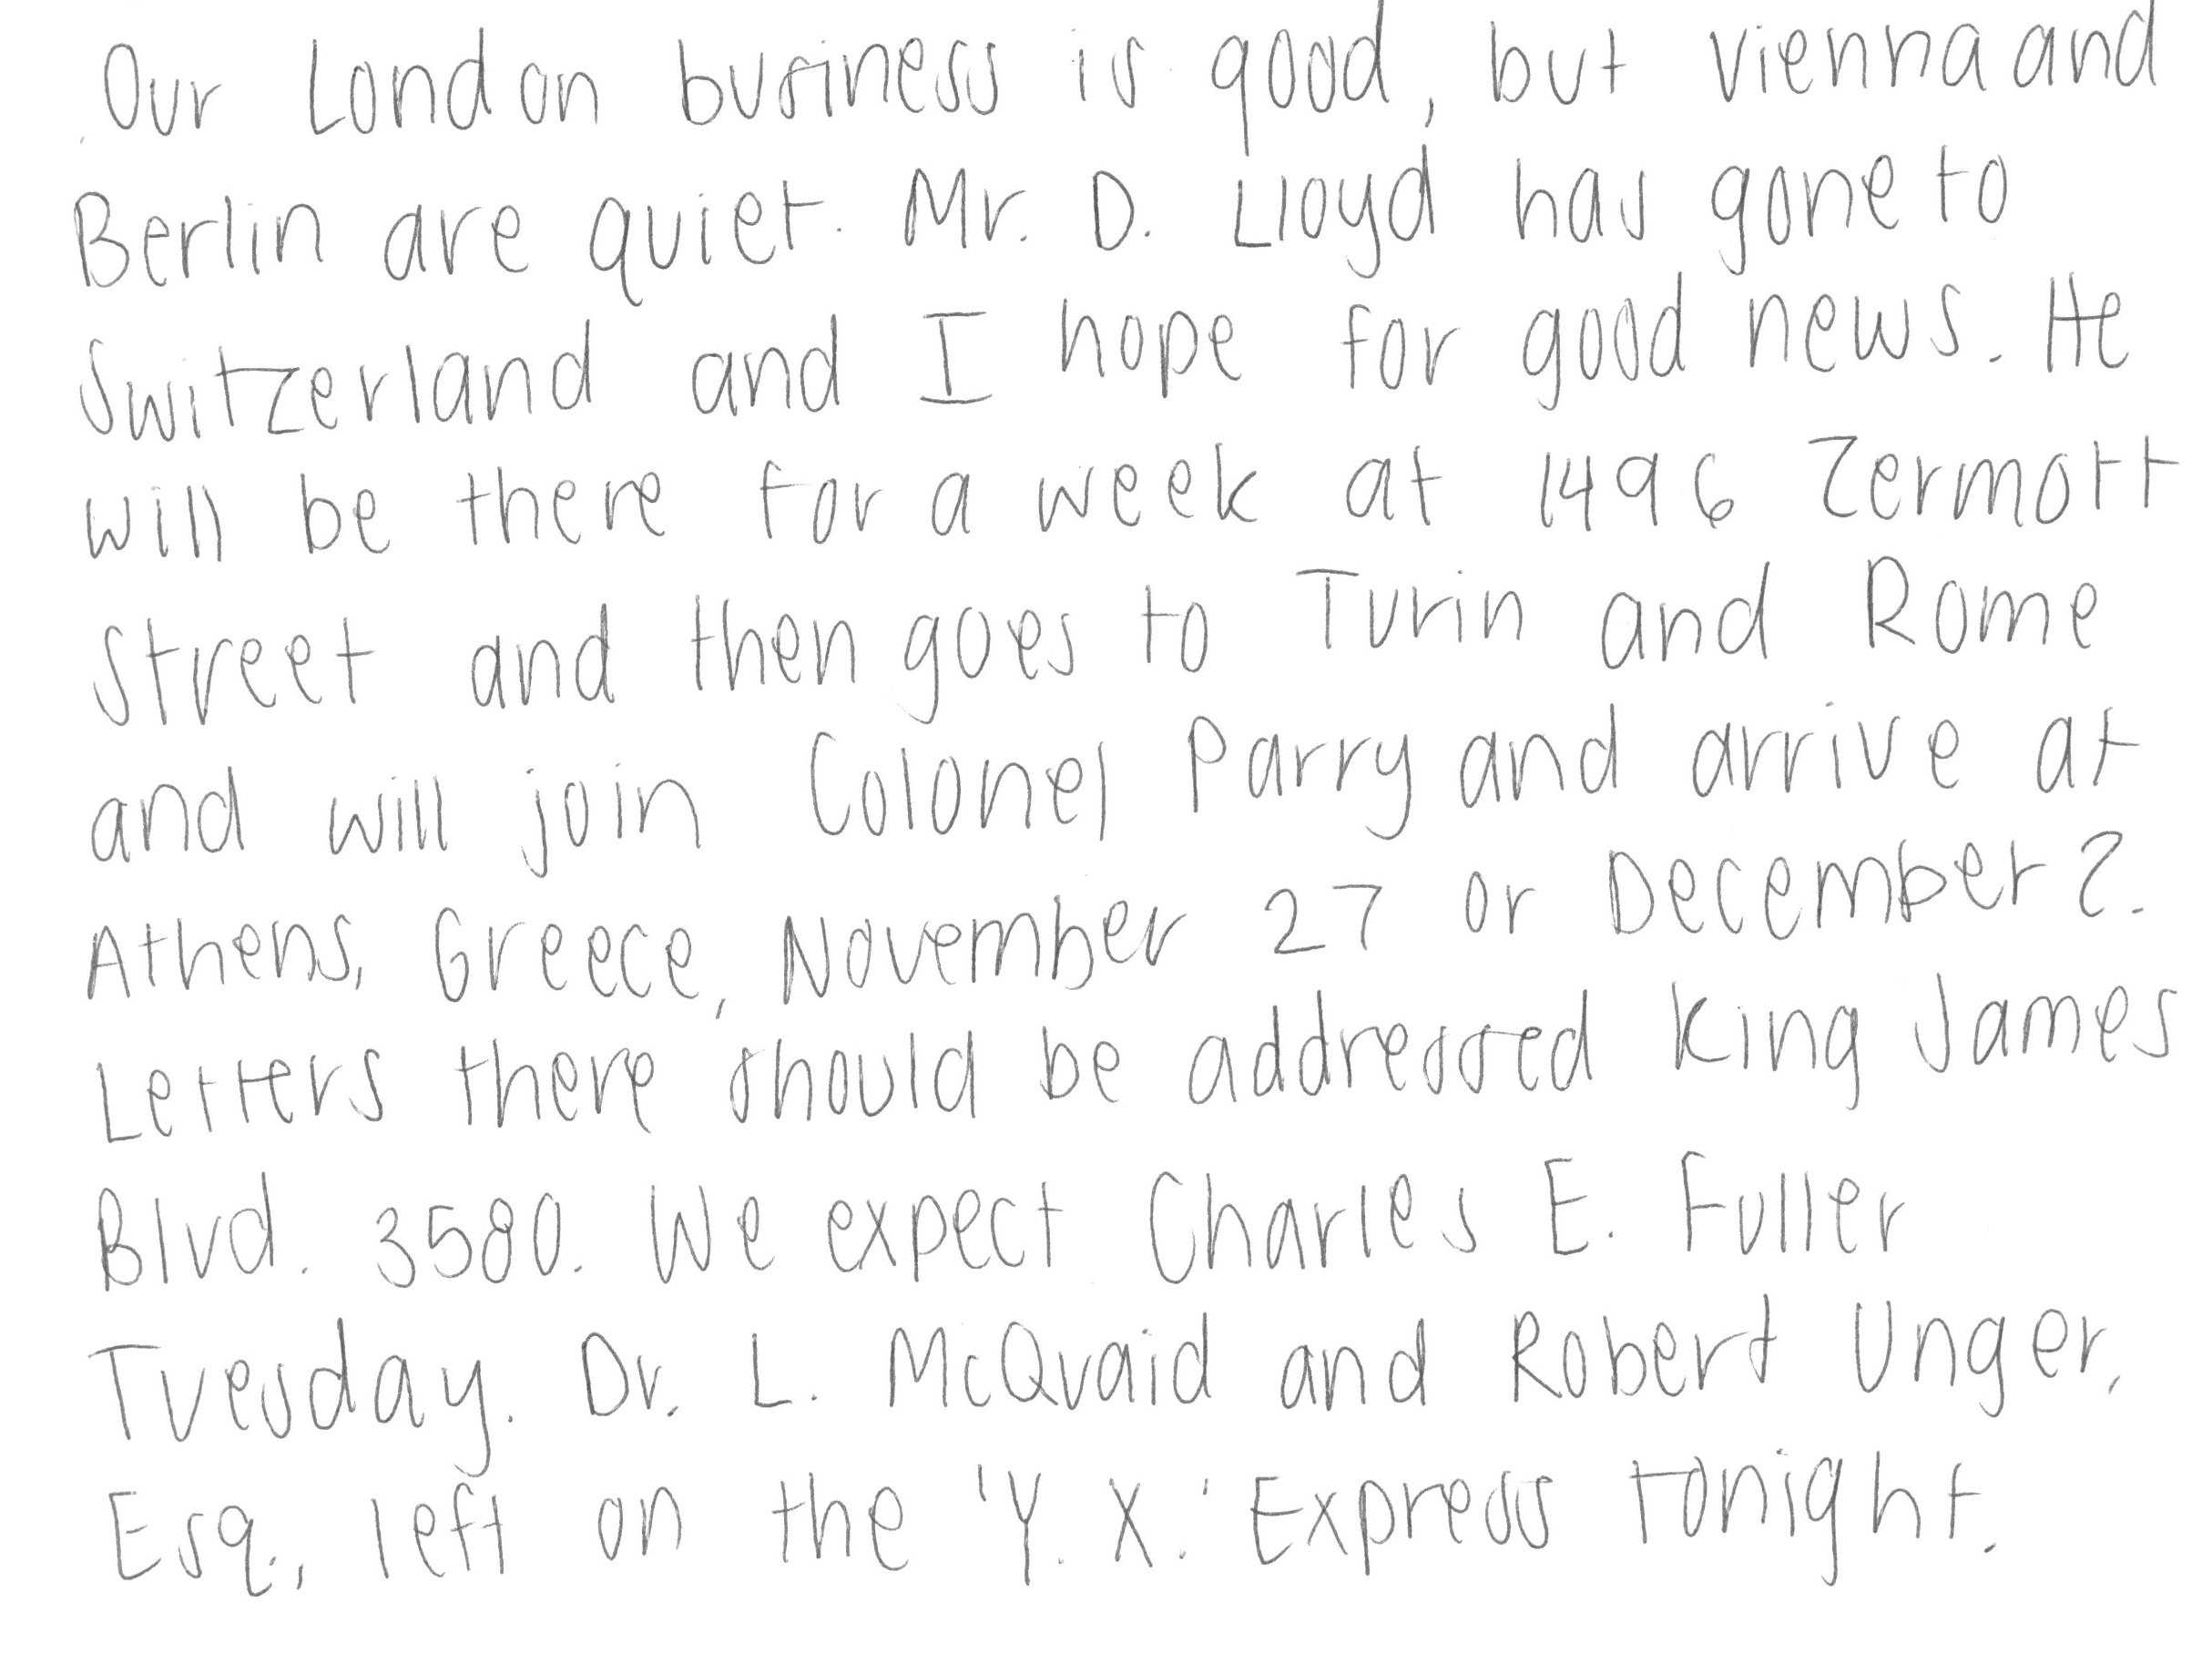 Our London business is good, but Vienna and
Berlin are quiet. Mr. D. Lloyd has gone to
Switzerland and I hope for good news. He
will be there for a week at 1496 Zermott
Street and then goes to Turin and Rome
and will join Colonel Parry and arrive at
Athens, Greece, November 27 or December 2.
Letters there should be addressed King James
Blvd. 3580. We expect Charles E. Fuller
Tuesday. Dr. L. McQuaid and Robert Unger,
Esq., left on the 'Y. X.' Express tonight.